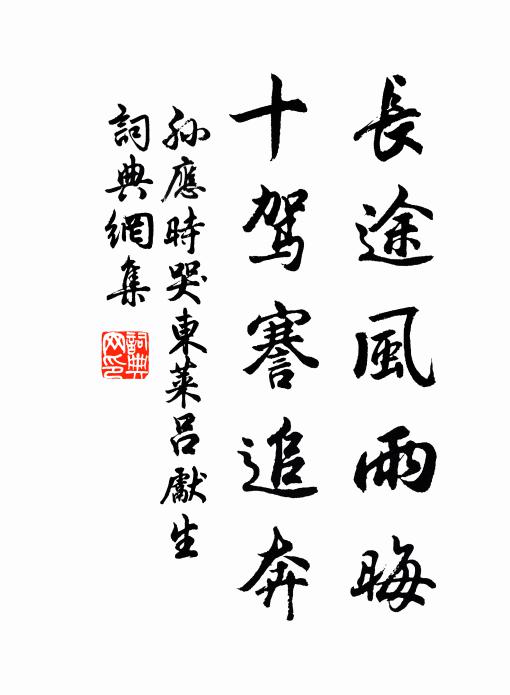 長途風雨晦
十駕謇追奔
孙應時哭東萊吕獻生
詞典網集
詞典网印